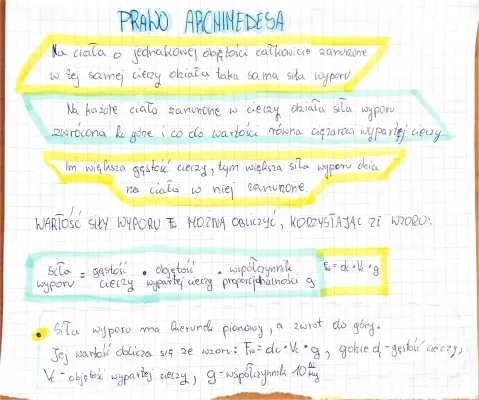 PRAWO ARCHIMEDESA
Na ciała o jednakowej objętości całkowicie zanurzone
w tej samej cieczy działa taka sama siła wyporu
Na każde ciało zanurzone w cieczy działa siła wyporu
zwrócona ku górze i co do wartości równa ciężarowi wypartej cieczy
Im większa gęstość cieczy, tym większa siła wyporu działa
na ciało w niej zanurzone
WARTOŚĆ SIŁY WYPORU Fw MOŻNA OBLICZYĆ, KORZYSTAJĄC ZE WZORU:
siła wyporu = gęstość cieczy • objętość wypartej cieczy • współczynnik proporcjonalności g
Fw = dc • Vc • g
• Siła wyporu ma kierunek pionowy, a zwrot do góry.
Jej wartość oblicza się ze wzoru: Fw = dc • Vc • g, gdzie dc - gęstość cieczy,
Vc - objętość wypartej cieczy, g - współczynnik 10 N/kg